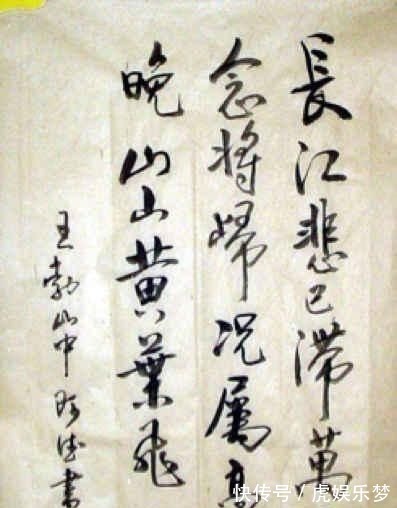 長江悲已滯萬
念將歸况屬高
晚山山黄葉飛
王勃山中書
快传号/虎娱乐梦